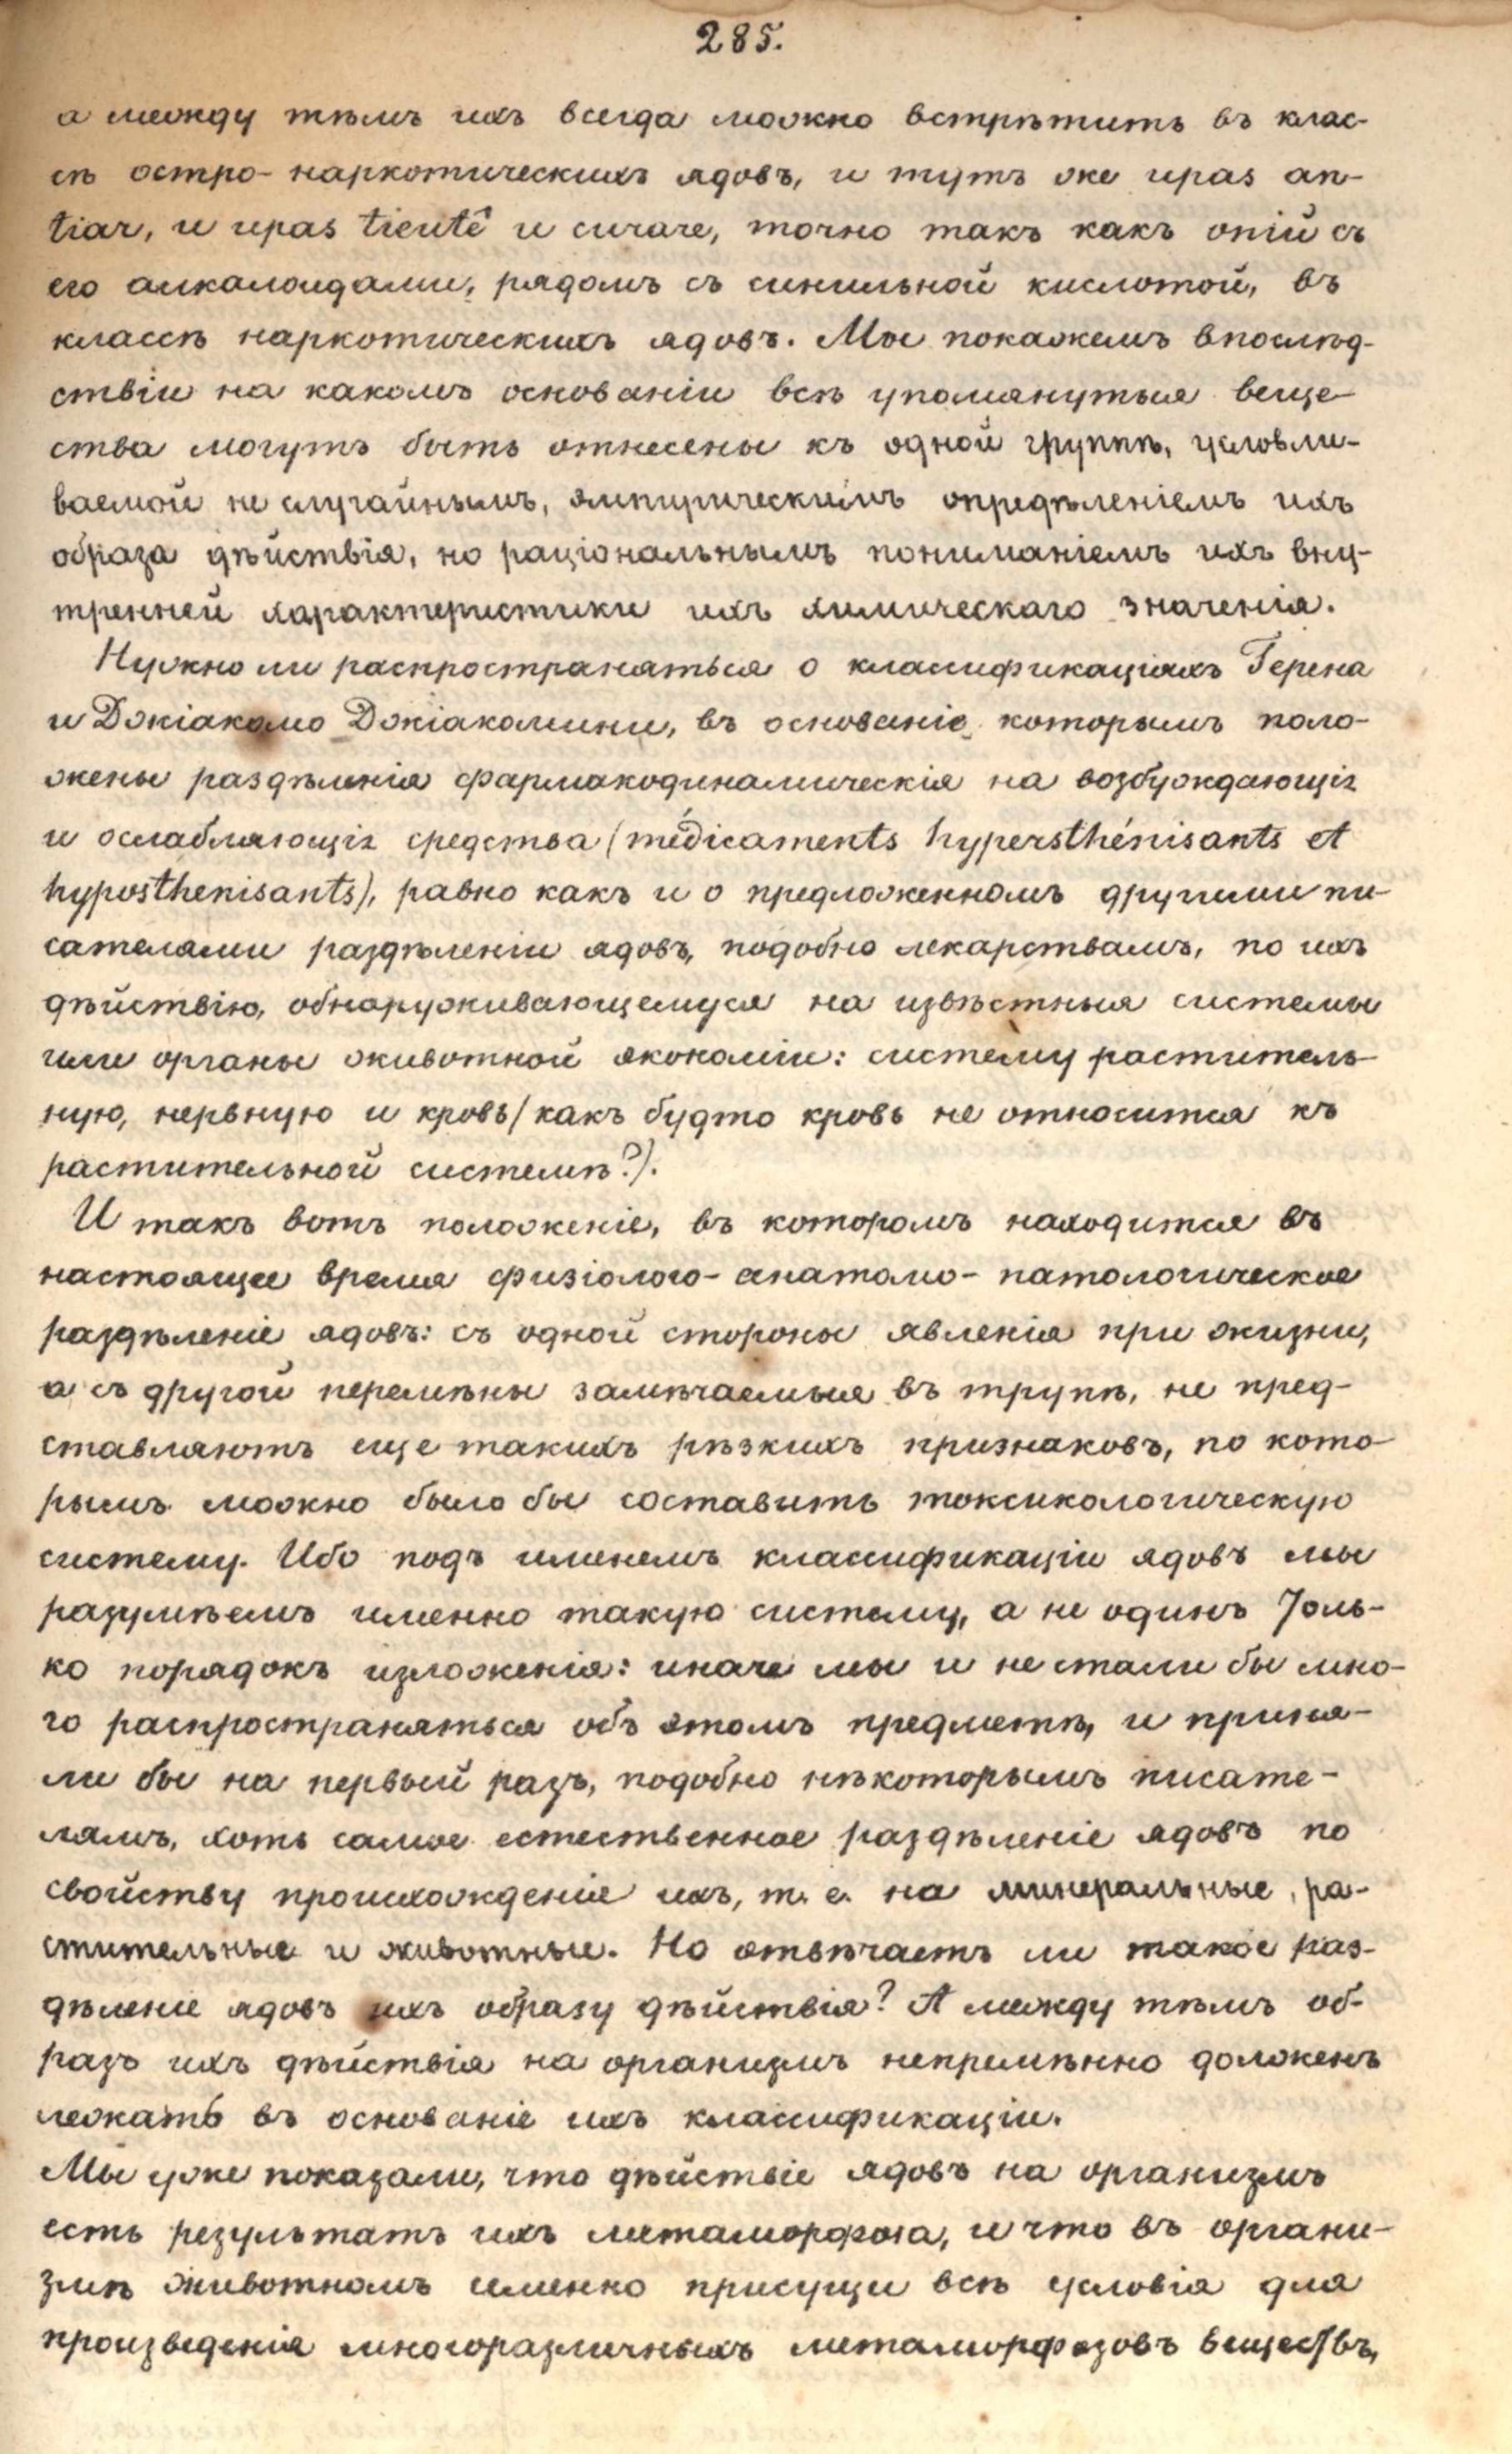 285.
а между тѣмъ ихъ всегда можно встрѣтить въ клас-
сѣ остро-наркотическихъ ядовъ, и тутъ же upas an-
tiar, и upas tieutê и curare, точно такъ какъ опій съ
его алкалоидами, рядомъ съ синильной кислотой, въ
классѣ наркотическихъ ядовъ. Мы покажемъ впослѣд-
ствіи на какомъ основаніи всѣ упомянутыя веще-
ства могутъ быть отнесены къ одной группѣ, условли-
ваемой не случайнымъ, эмпирическимъ опредѣленіемъ ихъ
образа дѣйствія, но раціональнымъ пониманіемъ ихъ вну-
тренней характеристики ихъ химическаго значенія.
Нужно ли распространяться о классификаціяхъ Герена
и Джіакомо Джіакомини, въ основаніе которымъ поло-
жены раздѣленія фармакодинамическія на возбуждающія
и ослабляющія средства (médicaments hypersthénisants et
hyposthenisants), равно какъ и о предложенномъ другими пи-
сателями раздѣленіи ядовъ, подобно лекарствамъ, по ихъ
дѣйствію, обнаруживающемуся на извѣстныя системы
или органы животной экономіи: систему раститель-
ную, нервную и кровь (какъ будто кровь не относится къ
растительной системѣ?).
И такъ вотъ положеніе, въ которомъ находится въ
настоящее время физіолого-анатомо-патологическое
раздѣленіе ядовъ: съ одной стороны явленія при жизни,
а съ другой перемѣны замѣчаемыя въ трупѣ, не пред-
ставляютъ еще такихъ рѣзкихъ признаковъ, по кото-
рымъ можно было бы составить токсикологическую
систему. Ибо подъ именемъ классификаціи ядовъ мы
разумѣемъ именно такую систему, а не одинъ толь-
ко порядокъ изложенія: иначе мы и не стали бы мно-
го распространяться объ этомъ предметѣ, и приня-
ли бы на первый разъ, подобно нѣкоторымъ писате-
лямъ, хоть самое естественное раздѣленіе ядовъ по
свойству происхожденія ихъ, т. е. на минеральные, ра-
стительные и животные. Но отвѣчаетъ ли такое раз-
дѣленіе ядовъ ихъ образу дѣйствія? А между тѣмъ об-
разъ ихъ дѣйствія на организмъ непремѣнно долженъ
лежать въ основаніе ихъ классификаціи.
Мы уже показали, что дѣйствіе ядовъ на организмъ
есть результатъ ихъ метаморфоза, и что въ органи-
змѣ животномъ именно присущи всѣ условія для
произведенія многоразличныхъ метаморфозовъ веществъ,